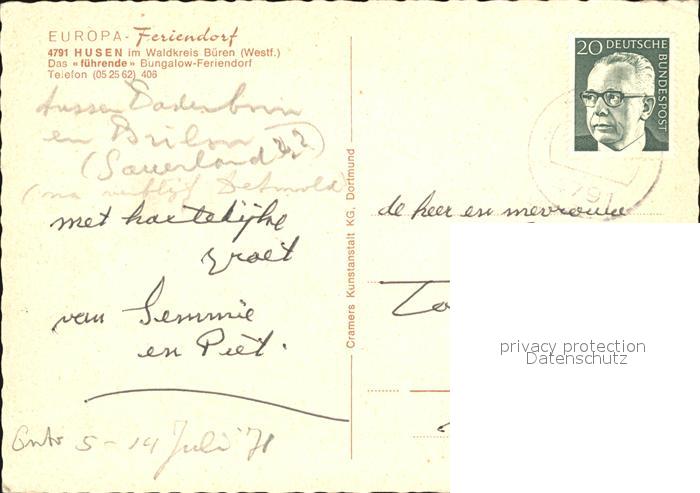 EUROPA - Feriendorf
4791 HUSEN im Waldkreis Büren (Westf.)
Das «führende» Bungalow-Feriendorf
Telefon (05 25 62) 406
tussen Paderborn
en Brilon
(Sauerland)
(na verblijf Detmold)
met hartelijke
groet
van Semmie
en Piet.
5-14 Juli '71
Cramers Kunstanstalt KG, Dortmund
20 DEUTSCHE
BUNDESPOST
791
de heer en mevrouw
privacy protection
Datenschutz